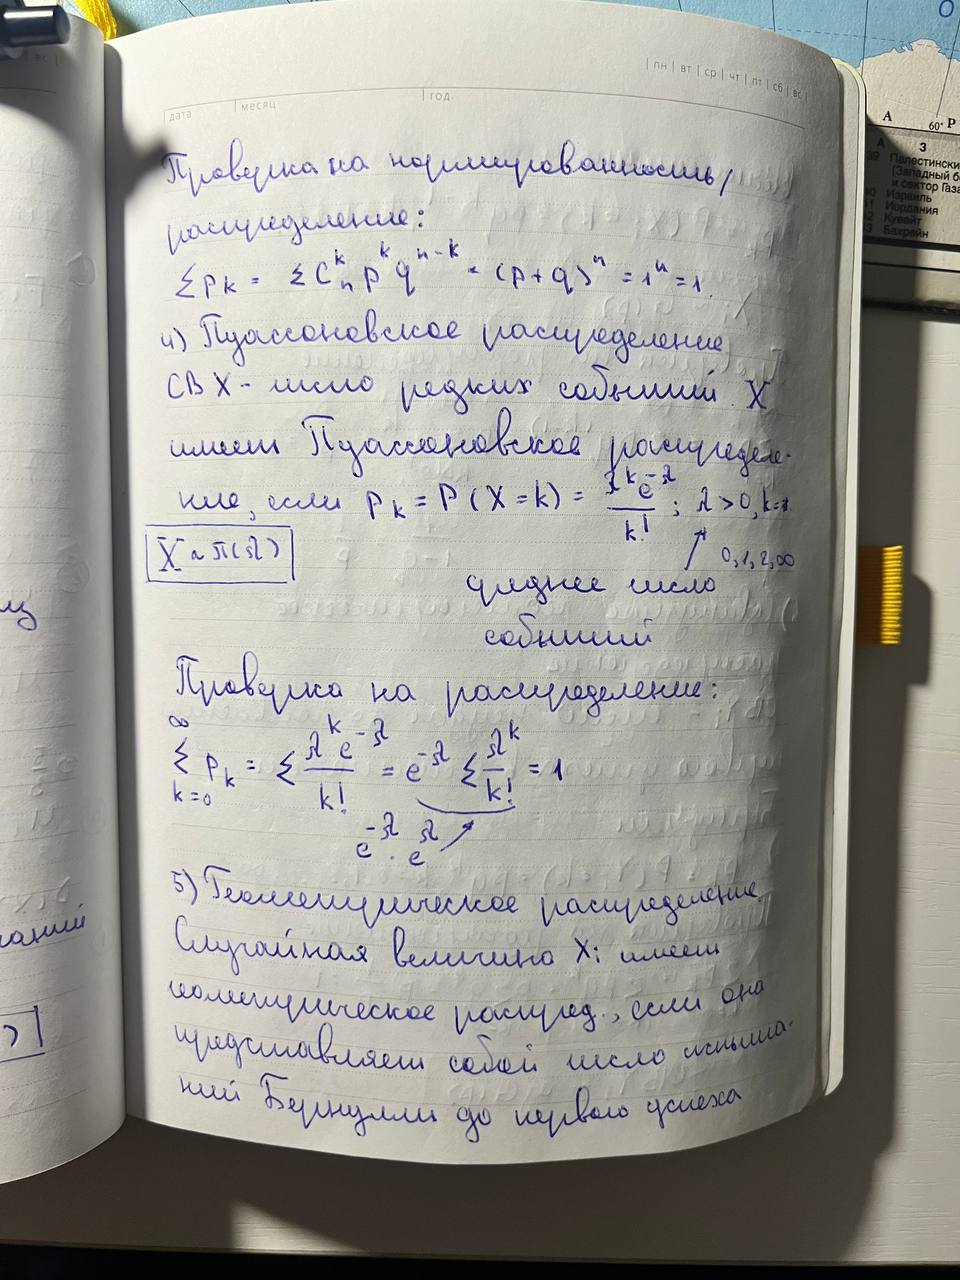 дата
месяц
год
пн | вт | ср | чт | пт | сб | вс
Проверка на нормированность/
распределение:
Σ pk = Σ C_n^k p^k q^{n-k} = (p+q)^n = 1^n = 1.
4) Пуассоновское распределение
СВ X - число редких событий. X
имеет Пуассоновское распределе-
ние, если p_k = P(X=k) = λ^k e^{-λ} / k! ; λ > 0, k =
0, 1, 2, ∞
X ~ π(λ)
среднее число
событий
Проверка на распределение:
Σ_{k=0}^{∞} p_k = Σ λ^k e^{-λ} / k! = e^{-λ} Σ λ^k / k! = 1
e^{-λ} · e^{λ}
5) Геометрическое распределение.
Случайная величина Xi имеет
геометрическое распред., если она
представляет собой число испыта-
ний Бернулли до первого успеха
вс
лз
ланий
О
А
60°
Р
А
З
39 Палестински
(Западный бе
и сектор Газа
40 Израиль
41 Иордания
42 Кувейт
43 Бахрейн